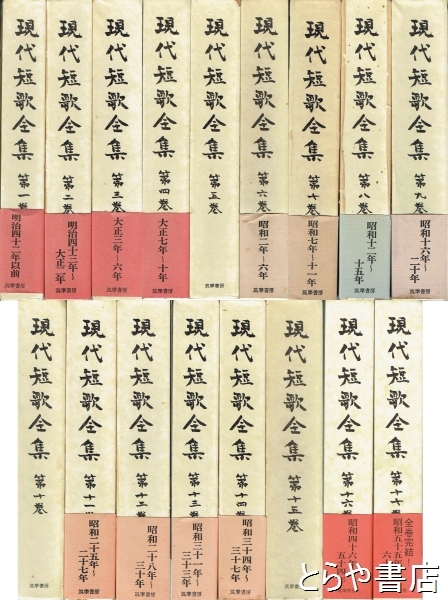 現代短歌全集 第一巻
明治四十二年以前
筑摩書房
現代短歌全集 第二巻
明治四十三年～
大正二年
筑摩書房
現代短歌全集 第三巻
大正三年～六年
筑摩書房
現代短歌全集 第四巻
大正七年～十年
筑摩書房
現代短歌全集 第五巻
筑摩書房
現代短歌全集 第六巻
昭和二年～六年
筑摩書房
現代短歌全集 第七巻
昭和七年～十一年
筑摩書房
現代短歌全集 第八巻
昭和十二年～
十五年
筑摩書房
現代短歌全集 第九巻
昭和十六年～
二十年
筑摩書房
現代短歌全集 第十巻
筑摩書房
現代短歌全集 第十一
昭和二十五年～
二十七年
筑摩書房
現代短歌全集 第十二
昭和二十八年～
三十年
筑摩書房
現代短歌全集 第十三
昭和三十一年～
三十三年
筑摩書房
現代短歌全集 第十四
昭和三十四年～
三十七年
筑摩書房
現代短歌全集 第十五巻
筑摩書房
現代短歌全集 第十六巻
昭和四十六
五十四
現代短歌全集 第十七巻
全巻完結！
昭和五十五
六
とらや書店